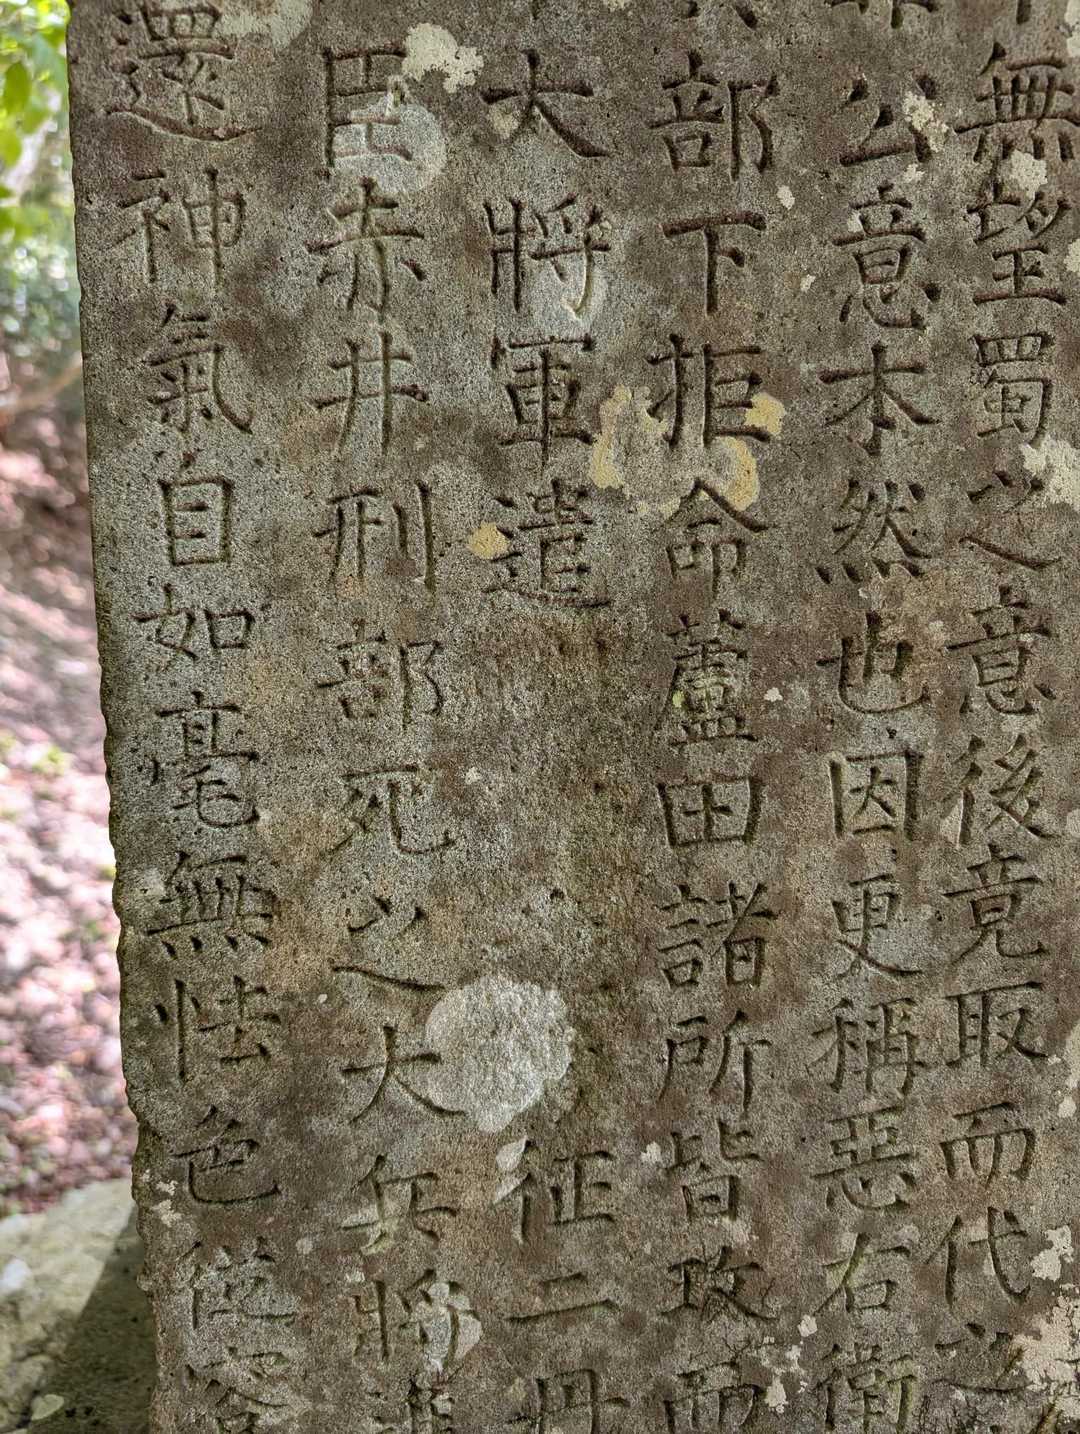 無望蜀之意後竟取而代之
公意本然也因更稱惡右衛
部下拒命蘆田諸所皆攻而
大將軍遣 征二丹
臣赤井刑部死之大兵將進
還神氣自如毫無怯色從容